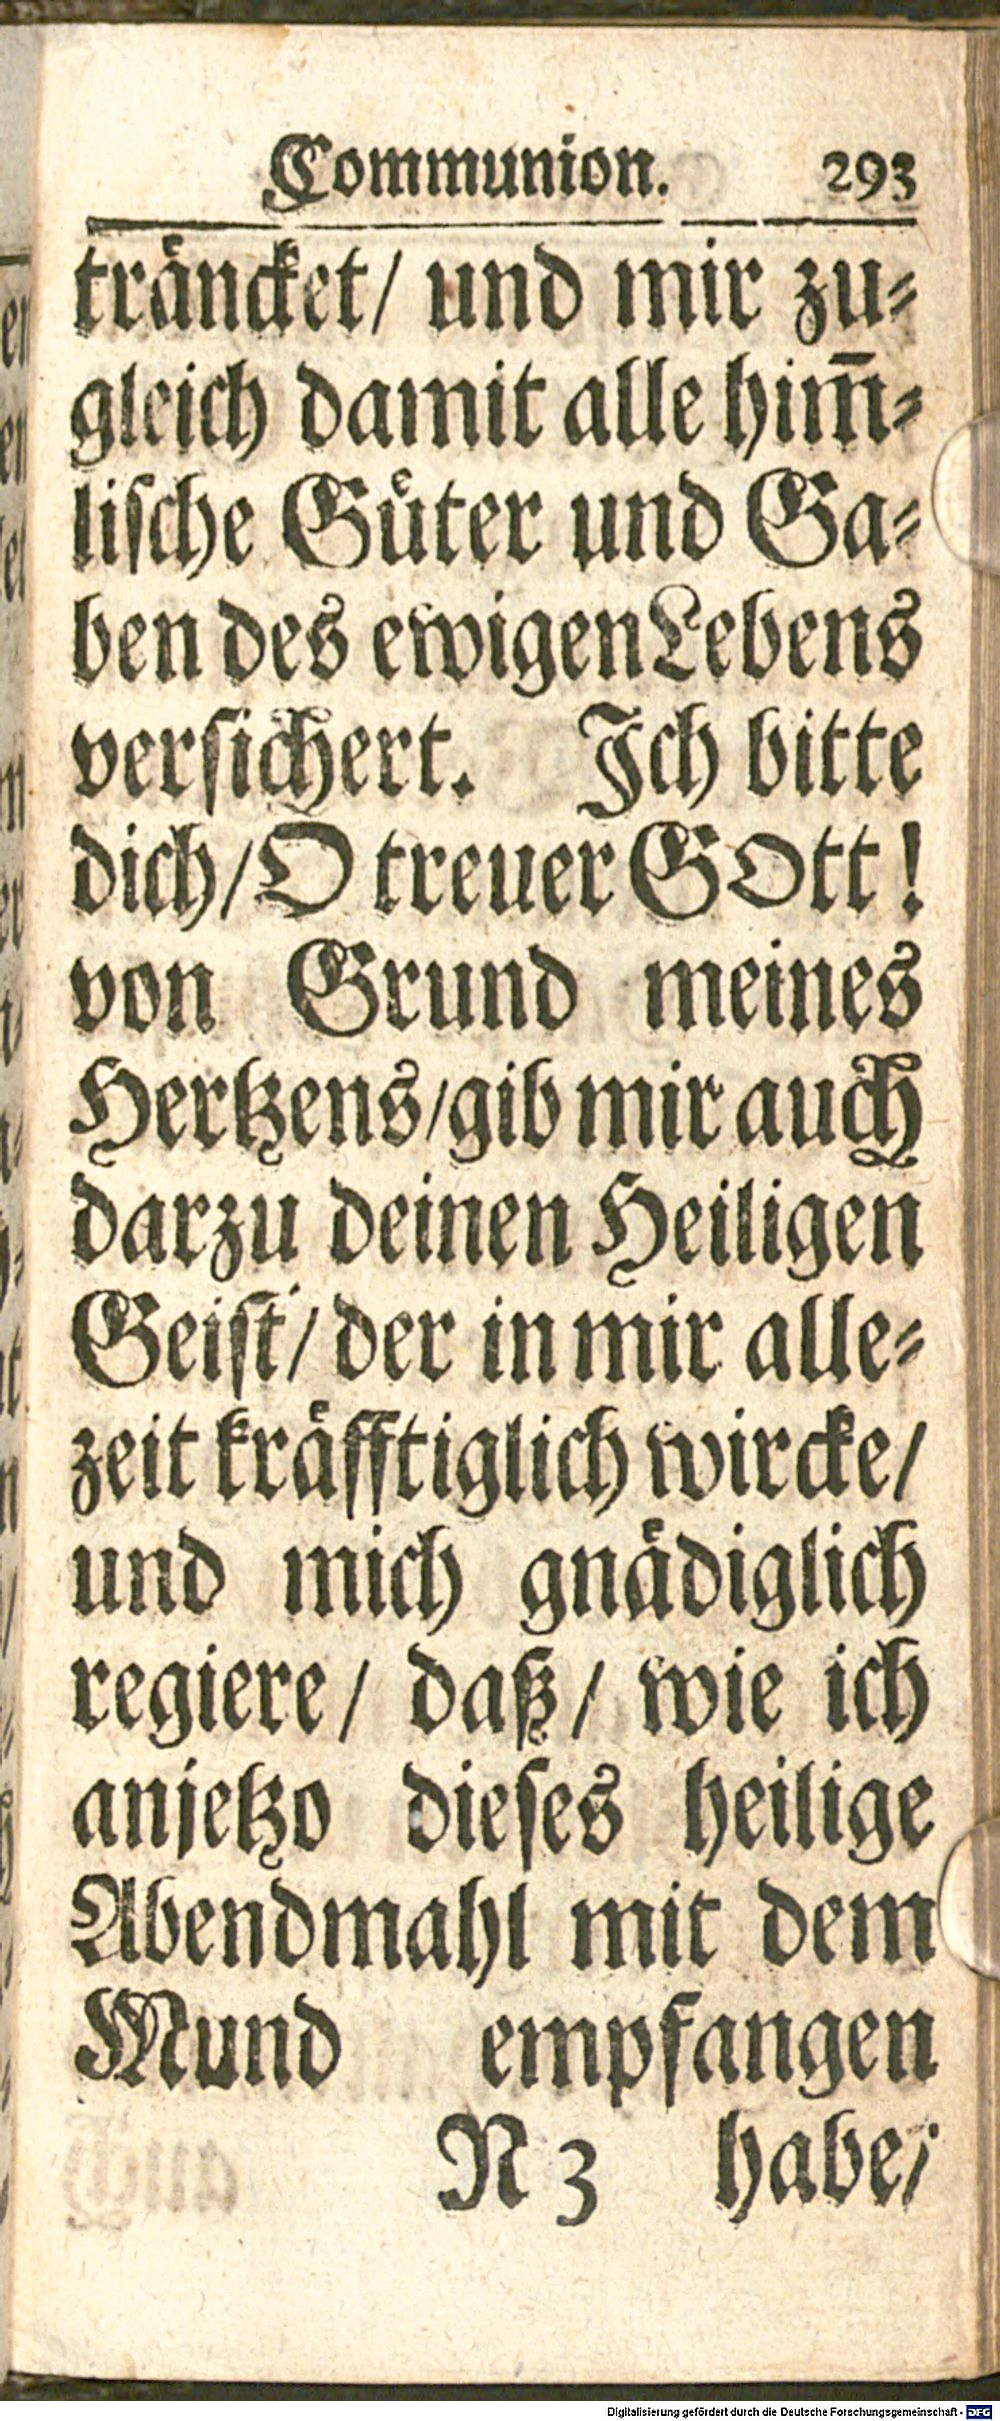 Communion. 293
traͤncket/ und mir zu⸗
gleich damit alle him̅⸗
liſche Guͤter und Ga⸗
ben des ewigen Lebens
verſichert. Ich bitte
dich/ O treuer GOtt!
von Grund meines
Hertzens/ gib mir auch
darzu deinen Heiligen
Geiſt/ der in mir alle⸗
zeit kraͤfftiglich wircke/
und mich gnaͤdiglich
regiere/ daß/ wie ich
anjetzo dieſes heilige
Abendmahl mit dem
Mund empfangen
N 3 habe/
Digitalisierung gefördert durch die Deutsche Forschungsgemeinschaft - DFG